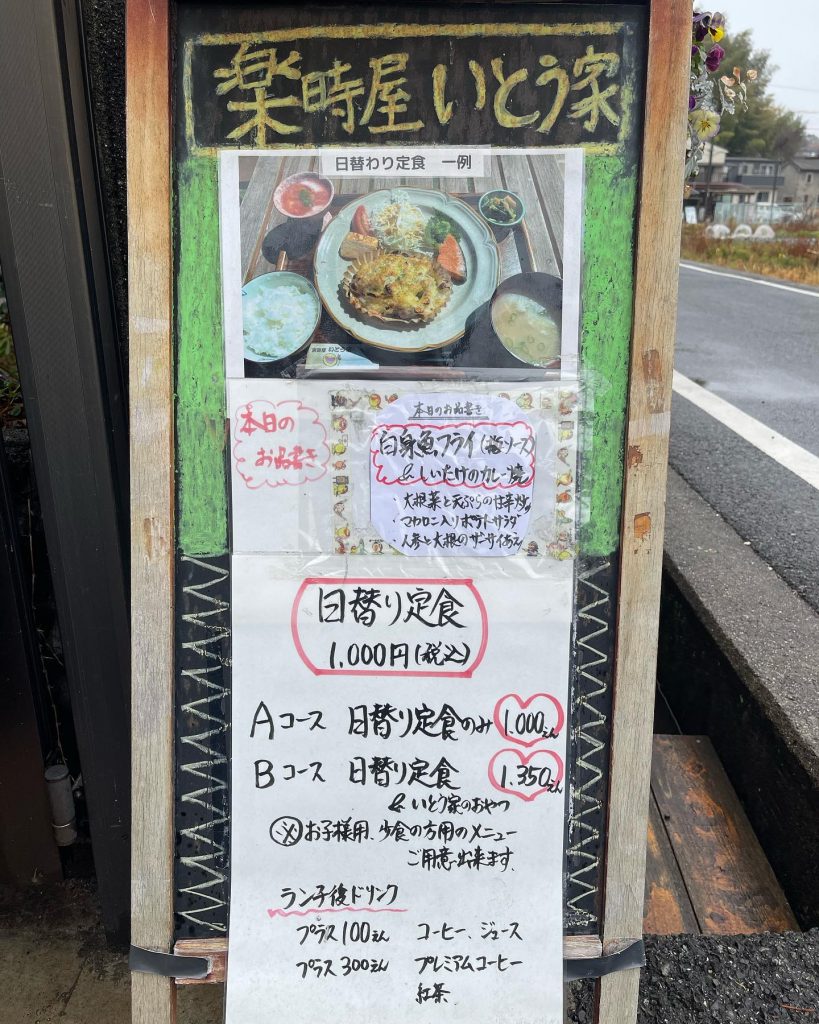 楽時屋 いとう家
日替わり定食 一例
本日の
お品書き
本日のお品書き
白身魚フライ(塩ソース)
&しいたけのカレー焼
・大根菜と天ぷらの甘辛炒り
・マカロニ入りポテトサラダ
・人参と大根のザーサイあえ
日替り定食
1.000円(税込)
Aコース 日替り定食のみ 1.000えん
Bコース 日替り定食 1.350えん
&いとう家のおやつ
※お子様用、少食の方用のメニュー
ご用意出来ます。
ランチ後ドリンク
プラス100えん コーヒー、ジュース
プラス300えん プレミアムコーヒー
紅茶